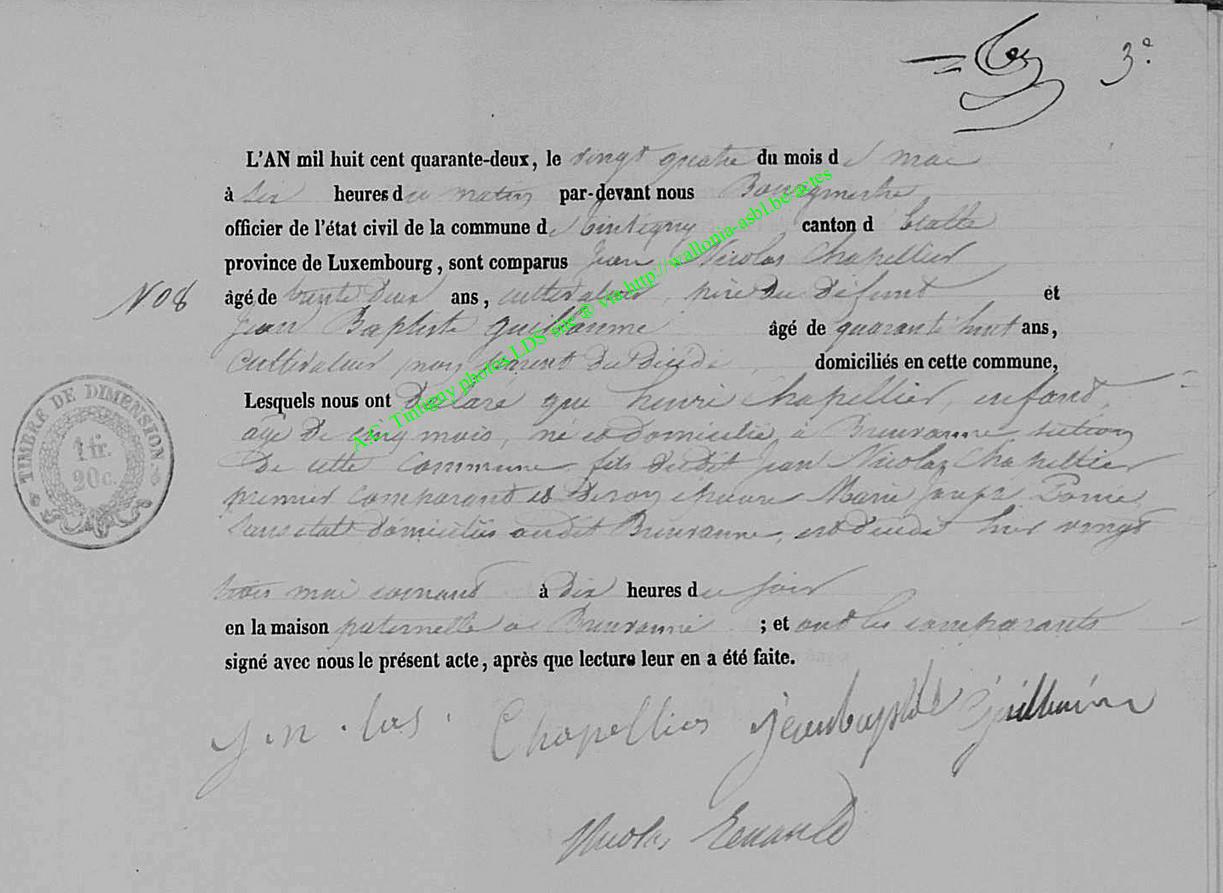 3e
L'AN mil huit cent quarante-deux, le vingt quatre du mois de mai
à six heures du matin par-devant nous Bourgmestre
officier de l'état civil de la commune de Tintigny canton d'Etalle
province de Luxembourg, sont comparus Jean Nicolas Chapellier
N° 8 âgé de trente deux ans, cultivateur père du défunt et
Jean Baptiste Guillaume âgé de quarante huit ans,
cultivateur non parent du décédé domiciliés en cette commune,
Lesquels nous ont déclaré que henri Chapellier, enfant,
âgé de cinq mois, né et domicilié à Breuvanne section
de cette commune fils dudit Jean Nicolas Chapellier
premier comparant et de son épouse Marie Joseph
sans état domiciliés audit Breuvanne, est décédé hier vingt
trois mai courant à dix heures du soir
en la maison paternelle à Breuvanne ; et ont les comparants
signé avec nous le présent acte, après que lecture leur en a été faite.
TIMBRE DE DIMENSION
1 fr.
20 c.
J. n. las. Chapellier jeanbaptiste Guillaume
Nicolas
A.C. Tintigny photos LDS site ® via http://wallonia-asbl.be/actes